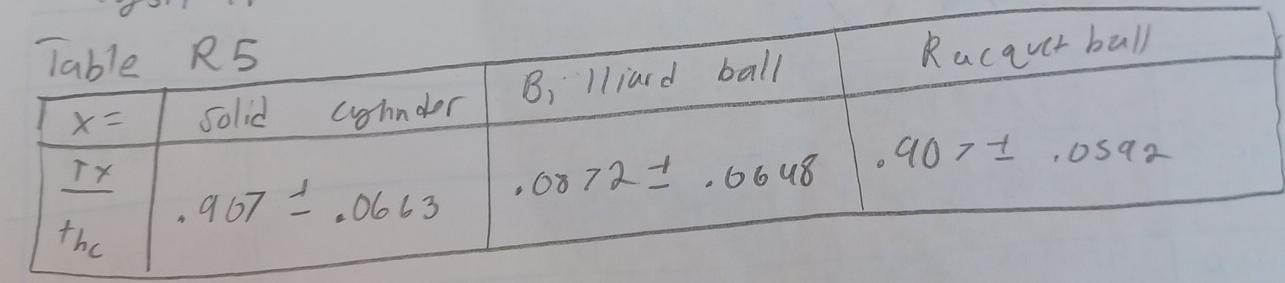 Table R5
x = solid cylinder Billiard ball Racquet ball
Tx/thc .967 ± .0663 .0872 ± .0648 .907 ± .0592